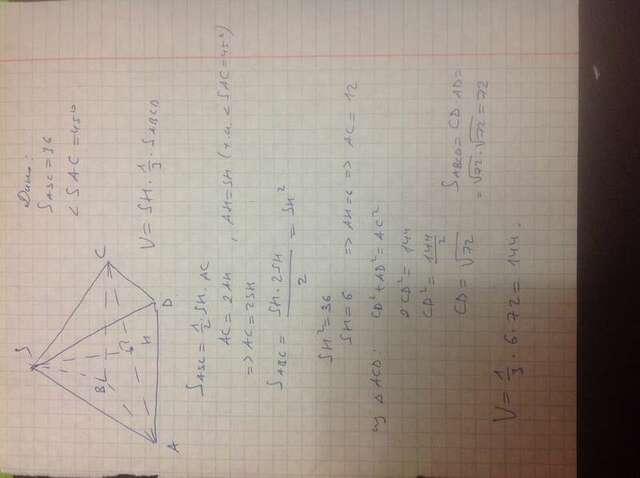 S
B
C
H
D
A
Дано:
S_ASC = 36
< SAC = 45°
V = SH · 1/3 · S_ABCD
S_ASC = 1/2 SH · AC
AC = 2AH , AH = SH (т.к. < SAC = 45°)
=> AC = 2SH
S_ABC = SH · 2SH / 2 = SH²
SH² = 36
SH = 6 => AH = 6 => AC = 12
из △ ACD. CD² + AD² = AC²
2CD² = 144
CD² = 144/2
CD = √72
S_ABCD = CD · AD =
= √72 · √72 = 72
V = 1/3 · 6 · 72 = 144.